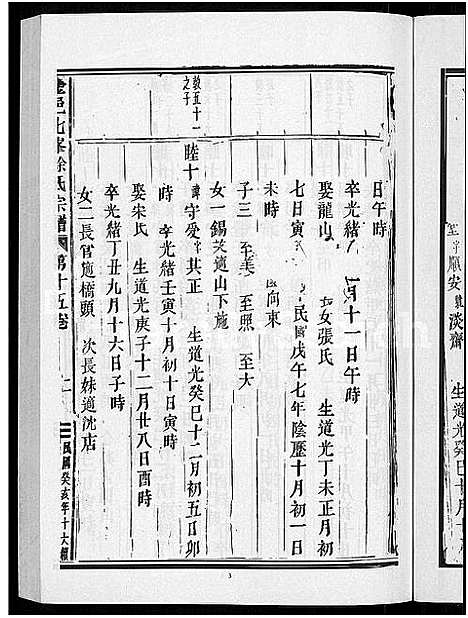 至 字順安 號淡齋 生道光癸巳十月十
日午時
卒光緒 十一日午時
娶龍山 女張氏 生道光丁未正月初
七日寅 民國戊午七年陰歷十月初一日
未時 向東
子三 至美 至照 至大
女一錫 適山下施
敦五十一之子
睦十 諱守受字其正 生道光癸巳十二月初五日卯
時 卒光緒壬寅十月初十日寅時
娶宋氏 生道光庚子十二月廿八日酉時
卒光緒丁丑九月十六日子時
女二長官適橋頭 次長妹適沈店
北峯徐氏宗譜 第十五卷 二 民國癸亥年十六
3